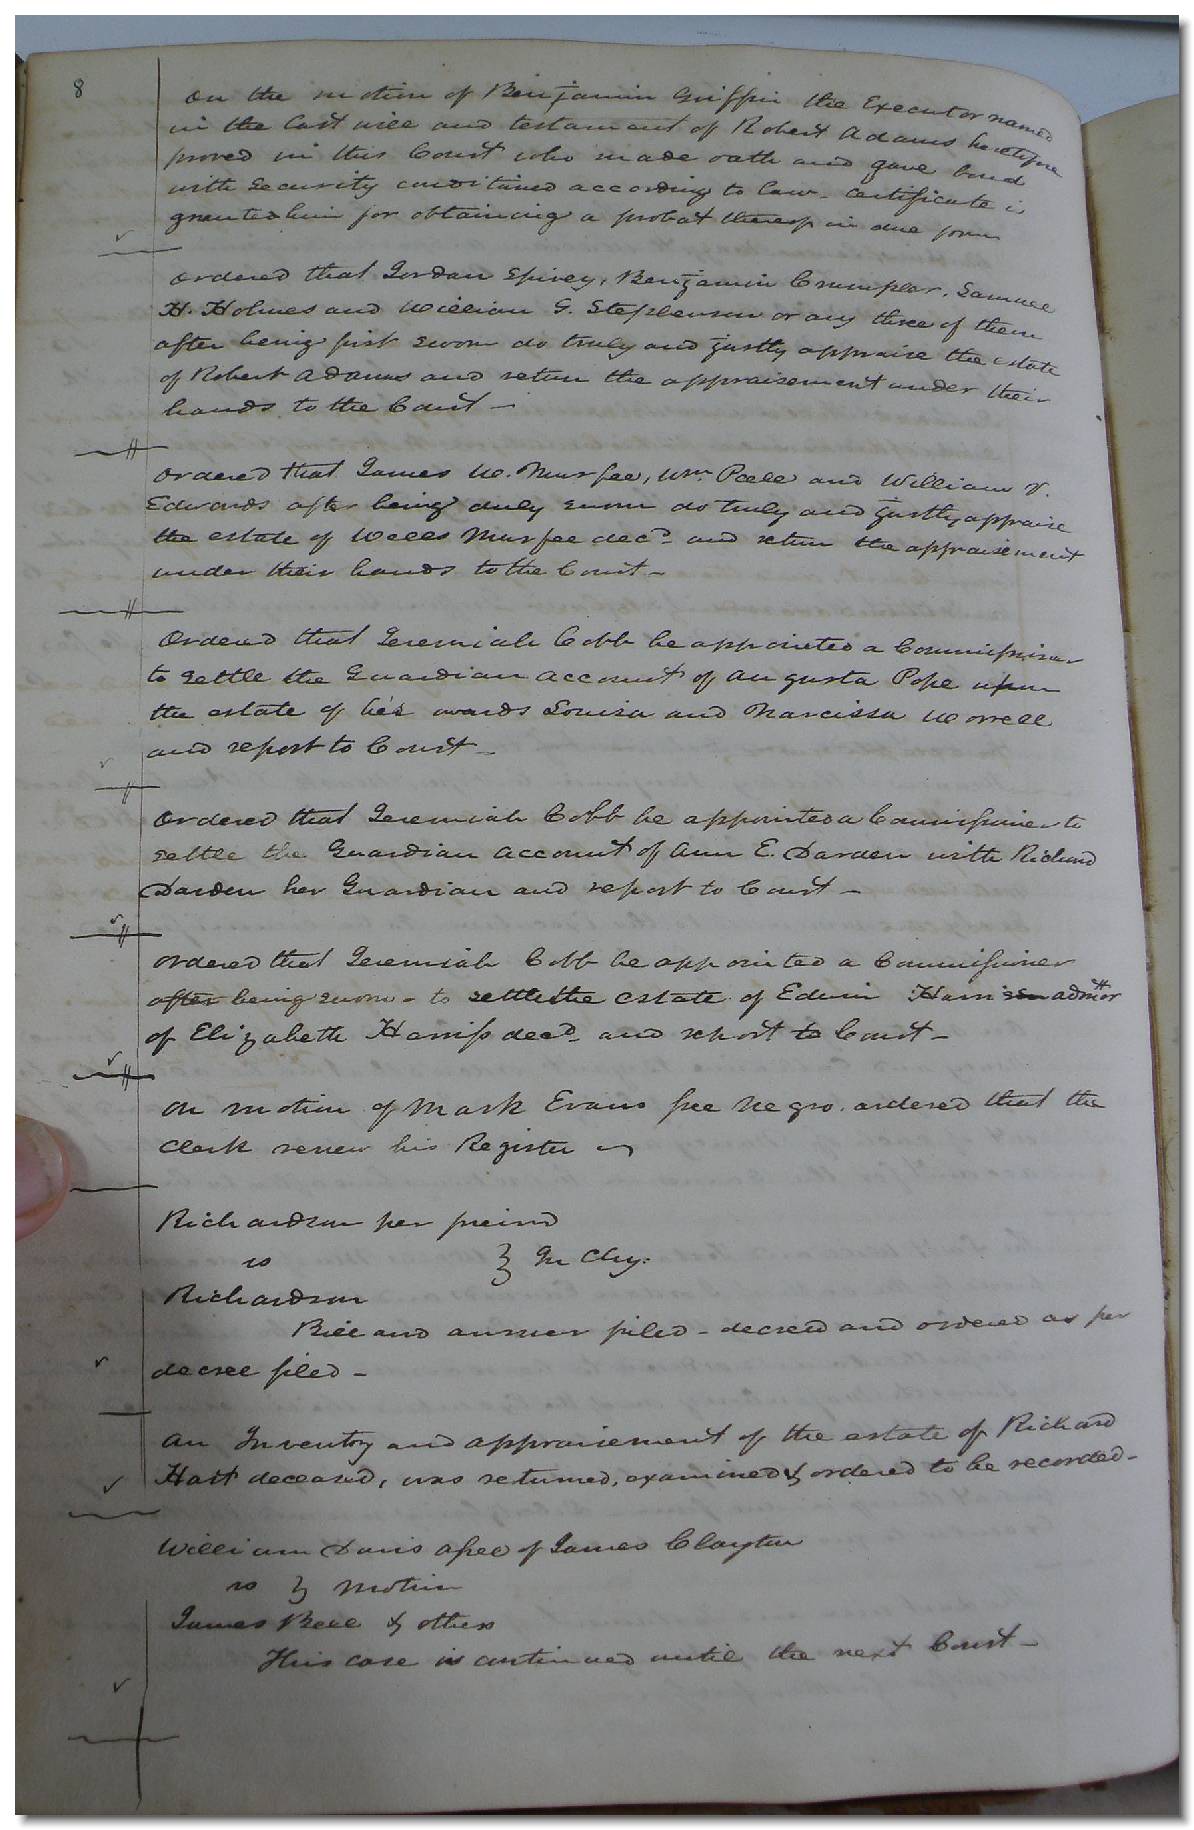 8
On the motion of Benjamin Griffin the Executor named
in the last will and testament of Robert Adams heretofore
proved in this Court who made oath and gave bond
with security conditioned according to law. Certificate is
granted him for obtaining a probat thereof in due form
Ordered that Jordan Spivey, Benjamin Crumpler, Samuel
H. Holmes and William G. Stephenson or any three of them
after being first sworn do truly and justly appraise the estate
of Robert Adams and return the appraisement under their
hands to the Court -
Ordered that James W. Murfee, Wm. Peele and William V.
Edwards after being duly sworn do truly and justly appraise
the estate of Wells Murfee decd. and return the appraisement
under their hands to the Court -
Ordered that Jeremiah Cobb be appointed a Commissioner
to settle the Guardian account of Augusta Pope upon
the estate of his wards Louisa and Narcissa Worrell
and report to Court -
Ordered that Jeremiah Cobb be appointed a Commissioner to
settle the Guardian account of Ann E. Darden with Richard
Darden her Guardian and report to Court -
Ordered that Jeremiah Cobb be appointed a Commissioner
after being sworn - to settle the estate of Edwin Harrison admor
of Elizabeth Harriss decd. and report to Court -
On motion of Mark Evans free negro ordered that the
Clerk renew his Register
Richardson per friend
vs } In Chy:
Richardson
Bill and answer filed - decreed and ordered as per
decree filed -
An Inventory and appraisement of the estate of Richard
Hart deceased, was returned, examined & ordered to be recorded -
William Davis assee of James Clayton
vs } Motion
James Bell & others
This case is continued until the next Court -